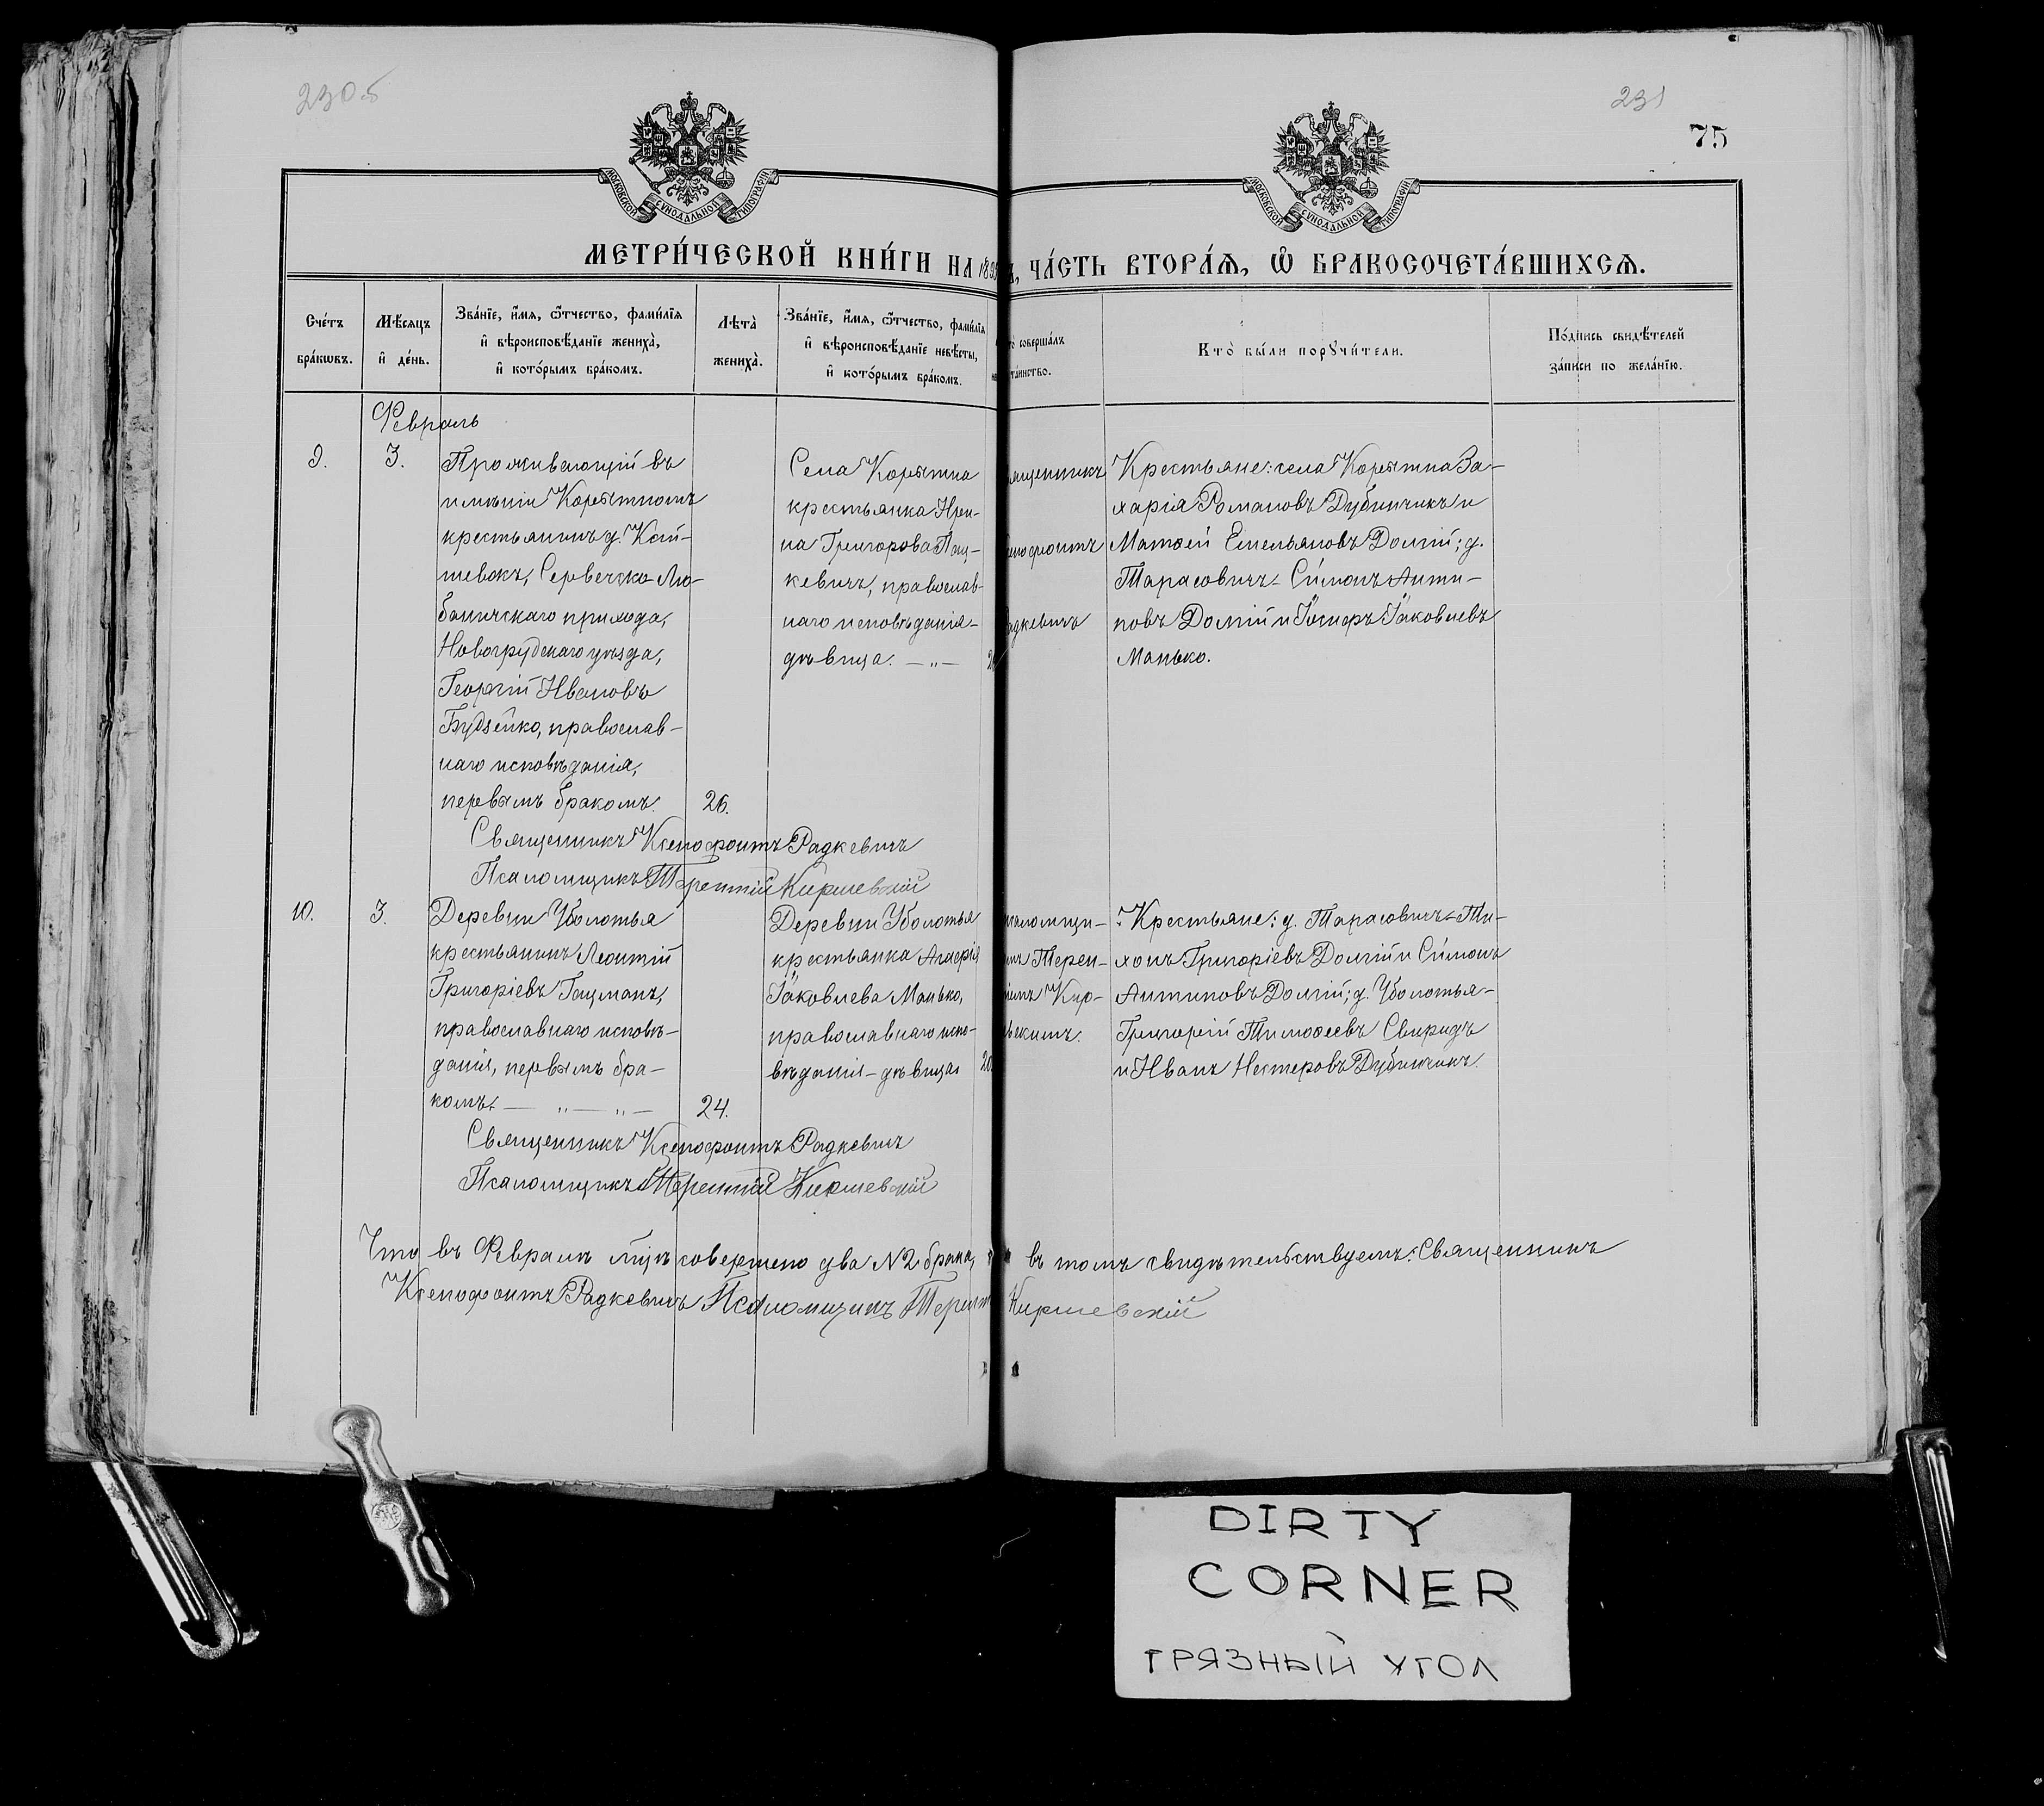 230об
231
75
МОСКОВСКОЙ СУНОДАЛЬНОЙ ТИПОГРАФІИ
МОСКОВСКОЙ СУНОДАЛЬНОЙ ТИПОГРАФІИ
МЕТРИ́ЧЕСКОЙ КНИ́ГИ НА 189 ЧА́СТЬ ВТОРА́Ѧ, Ѽ БРАКОСОЧЕТА́ВШИХСѦ.
Сче́тъ бра́кѡвъ.
Мѣ́сѧцъ и҆ де́нь.
Зва́нїе, и҆́мѧ, ѻ҆́тчество, фами́лїѧ и҆ вѣроисповѣ́данїе жениха̀, и҆ кото́рымъ бра́комъ.
Лѣта̀ жениха̀.
Зва́нїе, и҆́мѧ, ѻ҆́тчество, фами́лїѧ и҆ вѣроисповѣ́данїе невѣ́сты, и҆ кото́рымъ бра́комъ.
соверша́лъ таинство.
Кто̀ бы́ли порꙋчи́тели.
По́дпись свидѣ́телей за́писи по жела́нїю.
Февраль
9.
3.
Проживающій въ
имѣніи Корытномъ
крестьянинъ д. Кой-
шевокъ, Сервечско-Лю-
баничскаго прихода,
Новогрудскаго уѣзда,
Георгій Ивановъ
Будзейко, православ-
наго исповѣданія,
первымъ бракомъ.
26.
Села Корытна
крестьянка Ири-
на Григорова Пац-
кевичъ, православ-
наго исповѣданія-
дѣвица. — „ —
ященникъ
нофонтъ
адкевичъ
Крестьяне: села Корытна За-
харія Романовъ Дубинчикъ и
Матѳей Емельяновъ Долгій; д.
Тарасовичъ- Симонъ Анти-
повъ Долгій и Іосифъ Іаковлевъ
Манько.
Священникъ Ксенофонтъ Радкевичъ
Псаломщикъ Терентій Киршевскій
10.
3.
Деревни Уболотья
крестьянинъ Леонтій
Григоріевъ Гацманъ,
православнаго исповѣ-
данія, первымъ бра-
комъ. — „ — „ —
24.
Деревни Уболотья
крестьянка Агафія
Іаковлева Манько,
православнаго испо-
вѣданія - дѣвица
20
саломщи-
Терен-
Кир-
вскимъ.
Крестьяне: д. Тарасовичъ- Ти-
хонъ Григоріевъ Долгій и Симонъ
Антиповъ Долгій; д. Уболотья-
Григорій Тимоѳеевъ Свиридъ
и Иванъ Нестеровъ Дубинчикъ.
Священникъ Ксенофонтъ Радкевичъ
Псаломщикъ Терентій Киршевскій
Что въ Февралѣ м-цѣ совершено два №2 брака, въ томъ свидѣтельствуемъ: Священникъ
Ксенофонтъ Радкевичъ Псаломщикъ Терент Киршевскій
DIRTY
CORNER
ГРЯЗНЫЙ УГОЛ